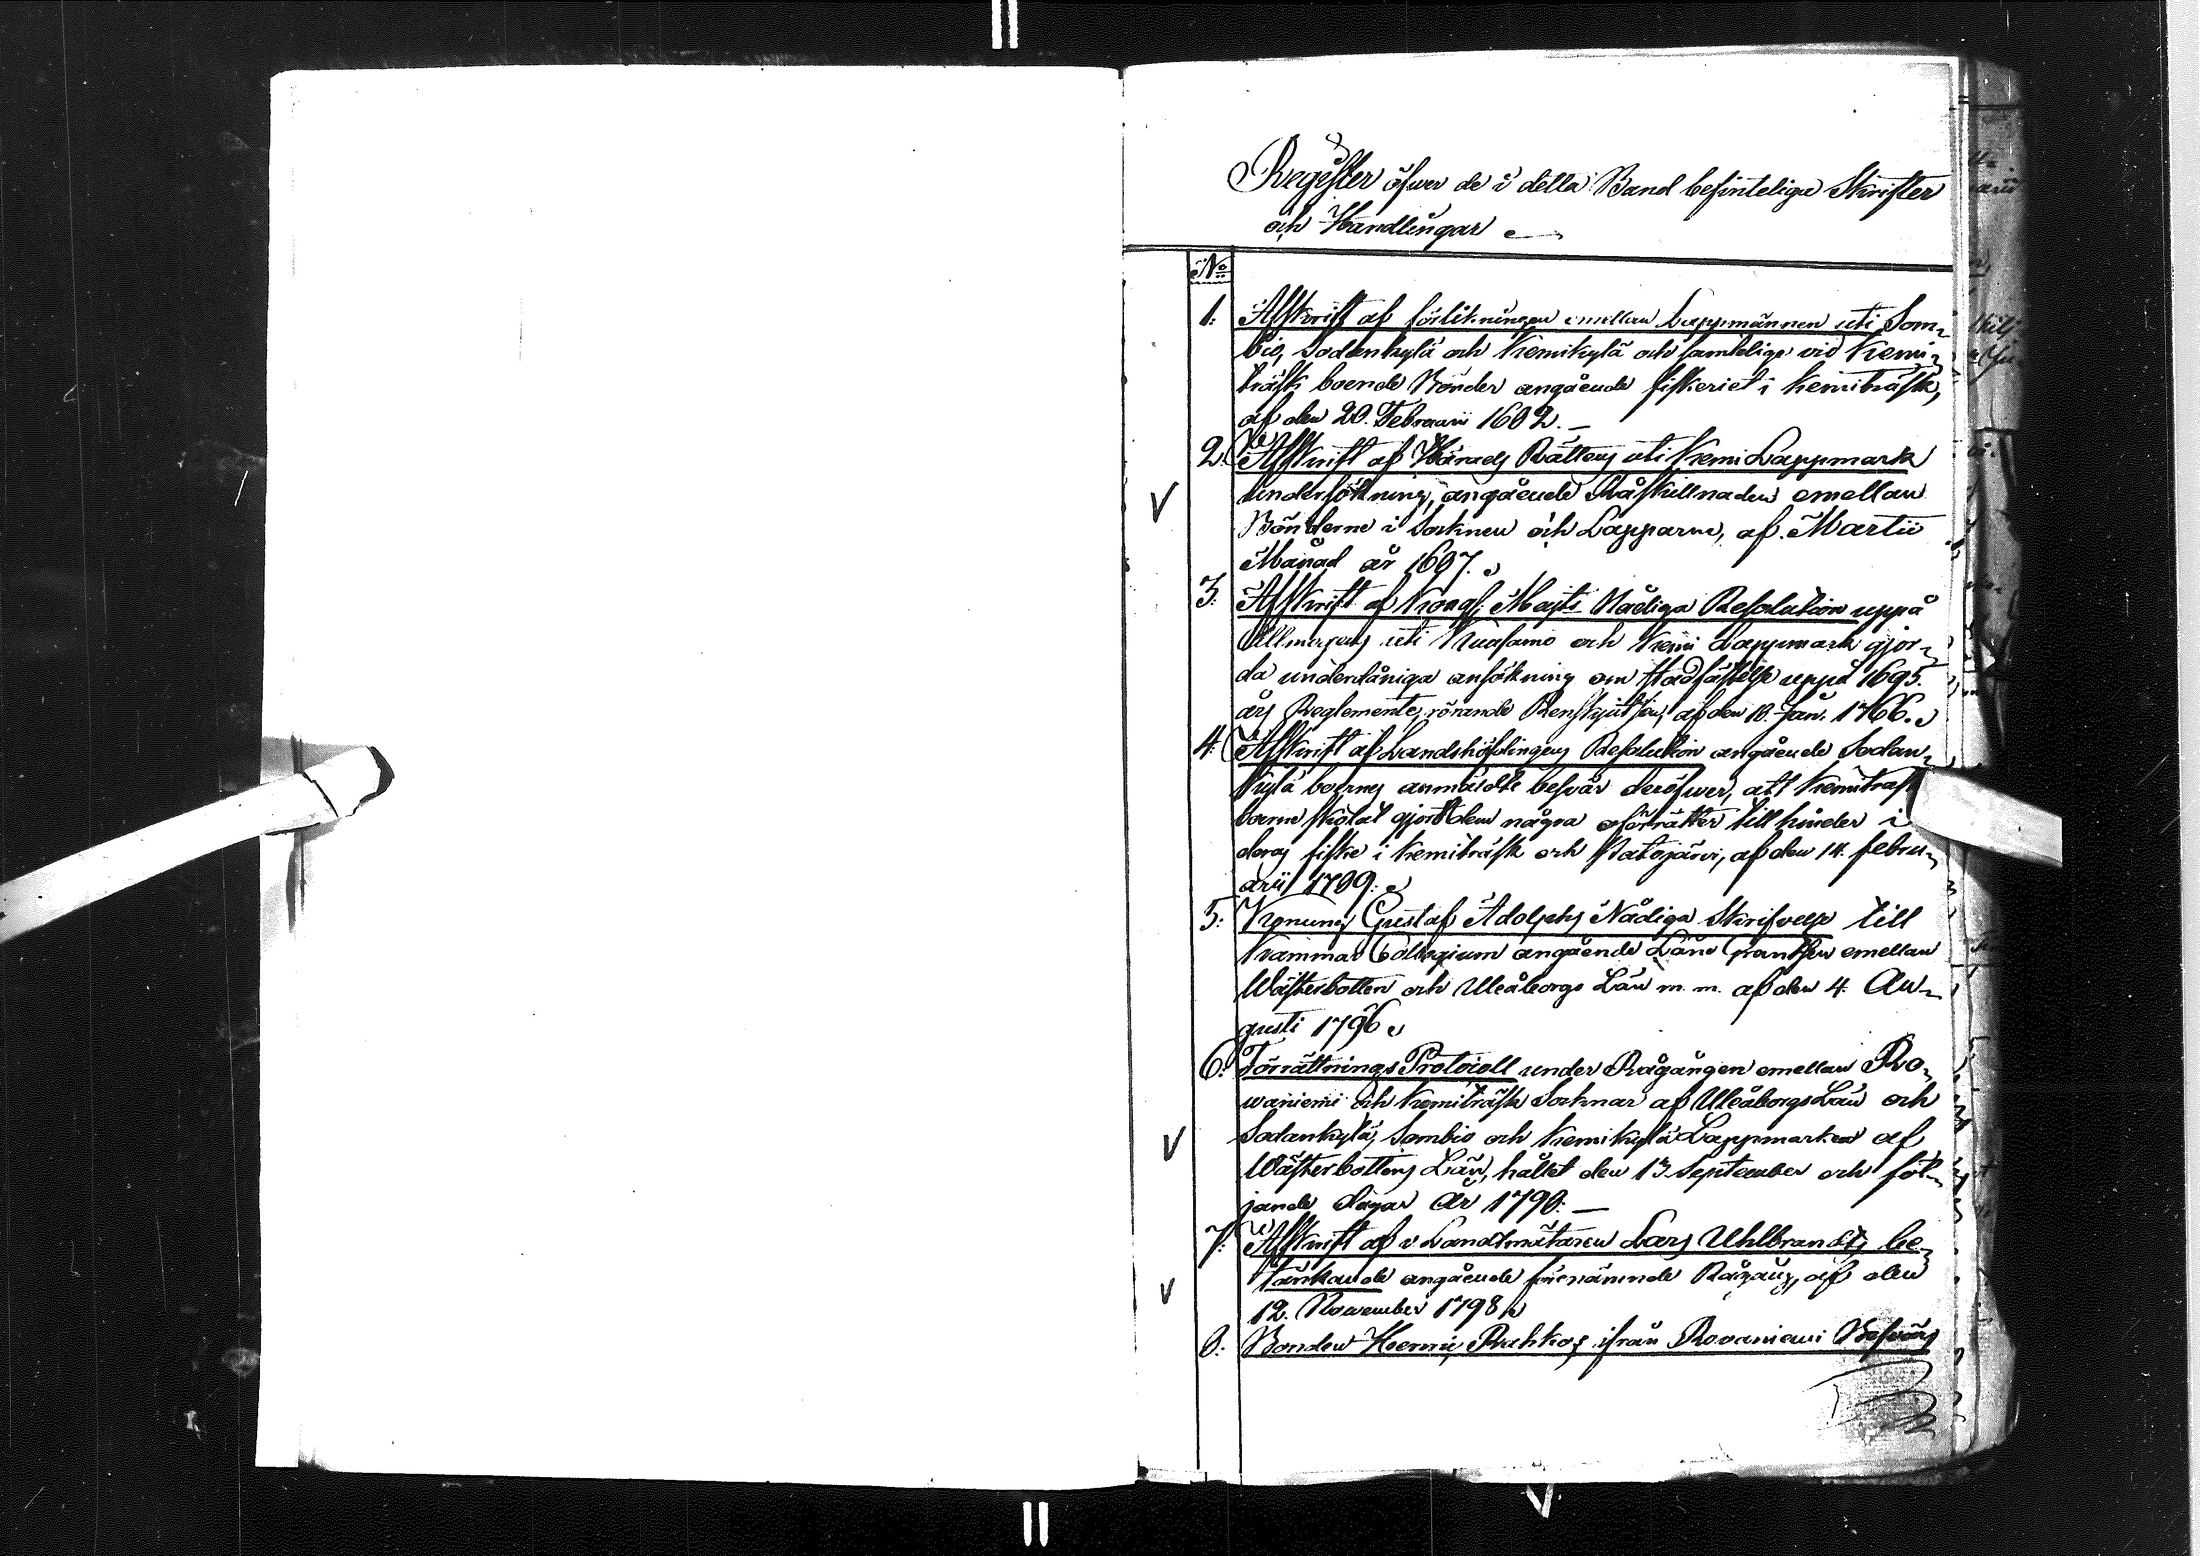 Register öfwer de i detta Band befinteliga Skrifter
och Handlingar
No
1. Afskrift af förlikningen emellan Lappmännen uti Som-
bio, Sodankylä och Kemikylä och samtelige vid Kemi-
träsk boende Bönder angående fiskeriet i Kemiträsk,
af den 20. Februarii 1602.
2. Afskrift af Härads Rättens uti Kemi Lappmark
undersökning, angående Råskillnaden emellan
Bönderne i Socknen och Lapparne, af Martii
Månad år 1687.
3. Afskrift af Kongl. Majts Nådiga Resolution uppå
Allmogens uti Kuusamo och Kemi Lappmark gjor-
da underdåniga ansökning om stadfästelse uppå 1695.
års Reglemente, rörande Renskjutsen, af den 18. Jan. 1766.
4. Afskrift af Landshöfdingens Resolution angående Sodan-
kylä boernes anmäldte besvär deröfwer, att Kemiträsk
boerne skolat gjort dem några oförrätter till hinder i
deras fiske i Kemiträsk och af den 14. febru-
arii 1709.
5. Konung Gustaf Adolphs Nådiga Skrifvelse till
Kammar Collegium angående Läne Gräntsen emellan
Wästerbotten och Uleåborgs Län m. m. af den 4. Au-
gusti 1796
6. Förrättnings Protocoll under Rågången emellan Ro-
waniemi och Kemiträsk Socknar af Uleåborgs Län och
Sodankylä, Sombio och Kemikylä Lappmarker af
Wästerbottens Län, hållet den 13 September och föl-
jande dagar år 1790.
7. Afskrift af v Landtmätaren Lars Uhlbrandts be-
tänkande angående förenämnde Rågång, af den
12. November 1798
8. Bonden Henric Rahkos ifrån Rovaniemi Besvärs